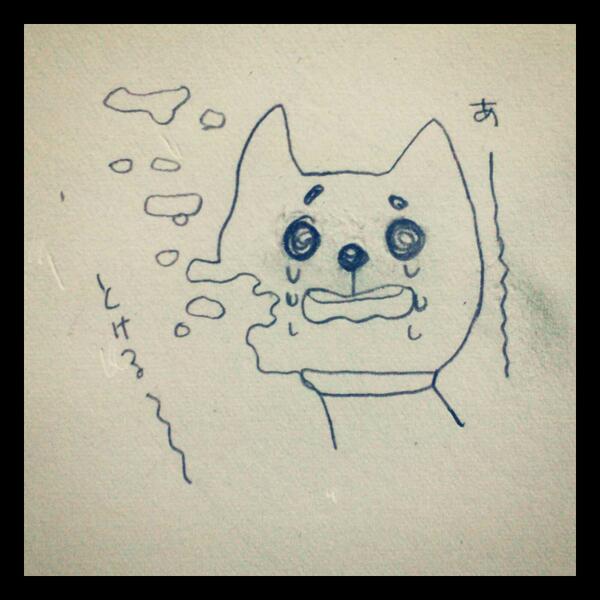 あ〜〜
とける〜〜